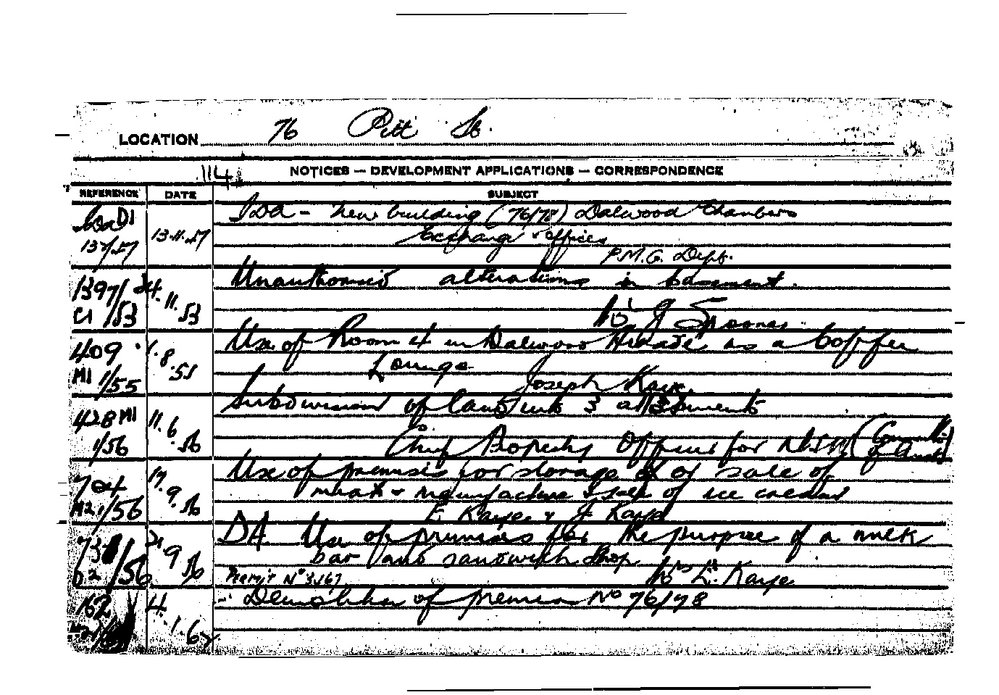 LOCATION 76 Pitt St.
114
NOTICES — DEVELOPMENT APPLICATIONS — CORRESPONDENCE
REFERENCE DATE SUBJECT
IDA - New building (76/78) Dalwood Chambers
13.11.57 Exchange & offices
P.M.G. Dept.
1397/53 24.11.53 Unauthorised alterations in basement.
409 1.8.55 Use of Room 4 in Dalwood Arcade as a Coffee
M1 1/55 Lounge
Joseph Kaye
428 M1 11.6.56 Subdivision of land into 3 allotments
1/56 Chief Property Officer for NSW
17.9.56 Use of premises for storage of sale of
M2 1/56 meat & manufacture & sale of ice cream
F. Kaye & J Kaye
9.56 DA Use of premises for the purpose of a milk
bar and sandwich shop
Permit No 3167 Kaye
162 Demolition of premises No 76/78